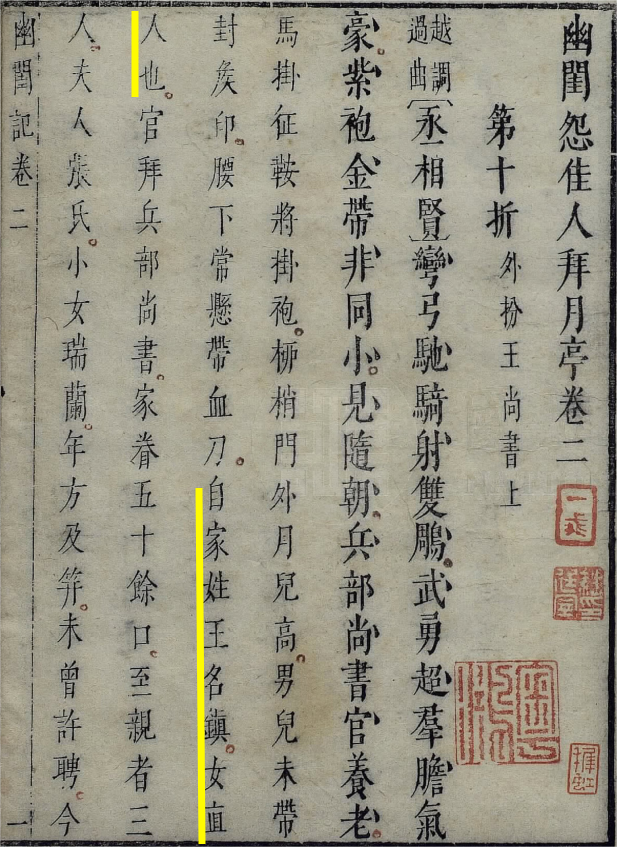 幽閨怨佳人拜月亭卷二
第十折 外扮王尚書上
越調過曲〔丞相賢〕彎弓馳騎射雙鵰。武勇超羣膽氣
豪紫袍金帶非同小。見隨朝。兵部尚書官養老。
馬掛征鞍將掛袍。柳梢門外月兒高。男兒未帶
封矦印。腰下常懸帶血刀。自家姓王名鎮。女直
人也。官拜兵部尚書。家眷五十餘口。至親者三
人。夫人張氏。小女瑞蘭。年方及笄。未曾許聘。今
幽閨記卷二 一